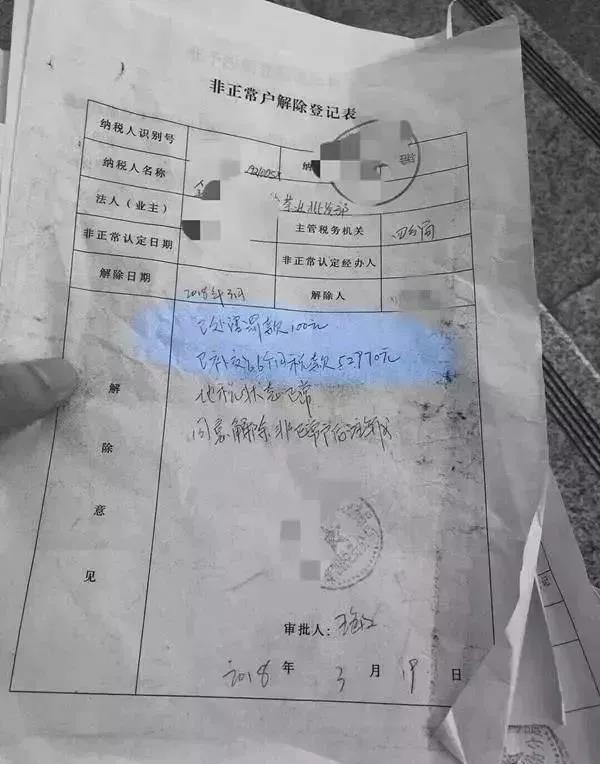 非正常户解除登记表
纳税人识别号
纳税人名称
法人（业主） 主管税务机关 四分局
非正常认定日期 非正常认定经办人
解除日期 2018年3月 解除人
已处语罚款100元
已补交66个月税款52970元
他税状态正常
同意解除非正常户后注销
解除意见
审批人：
2018年3月19日